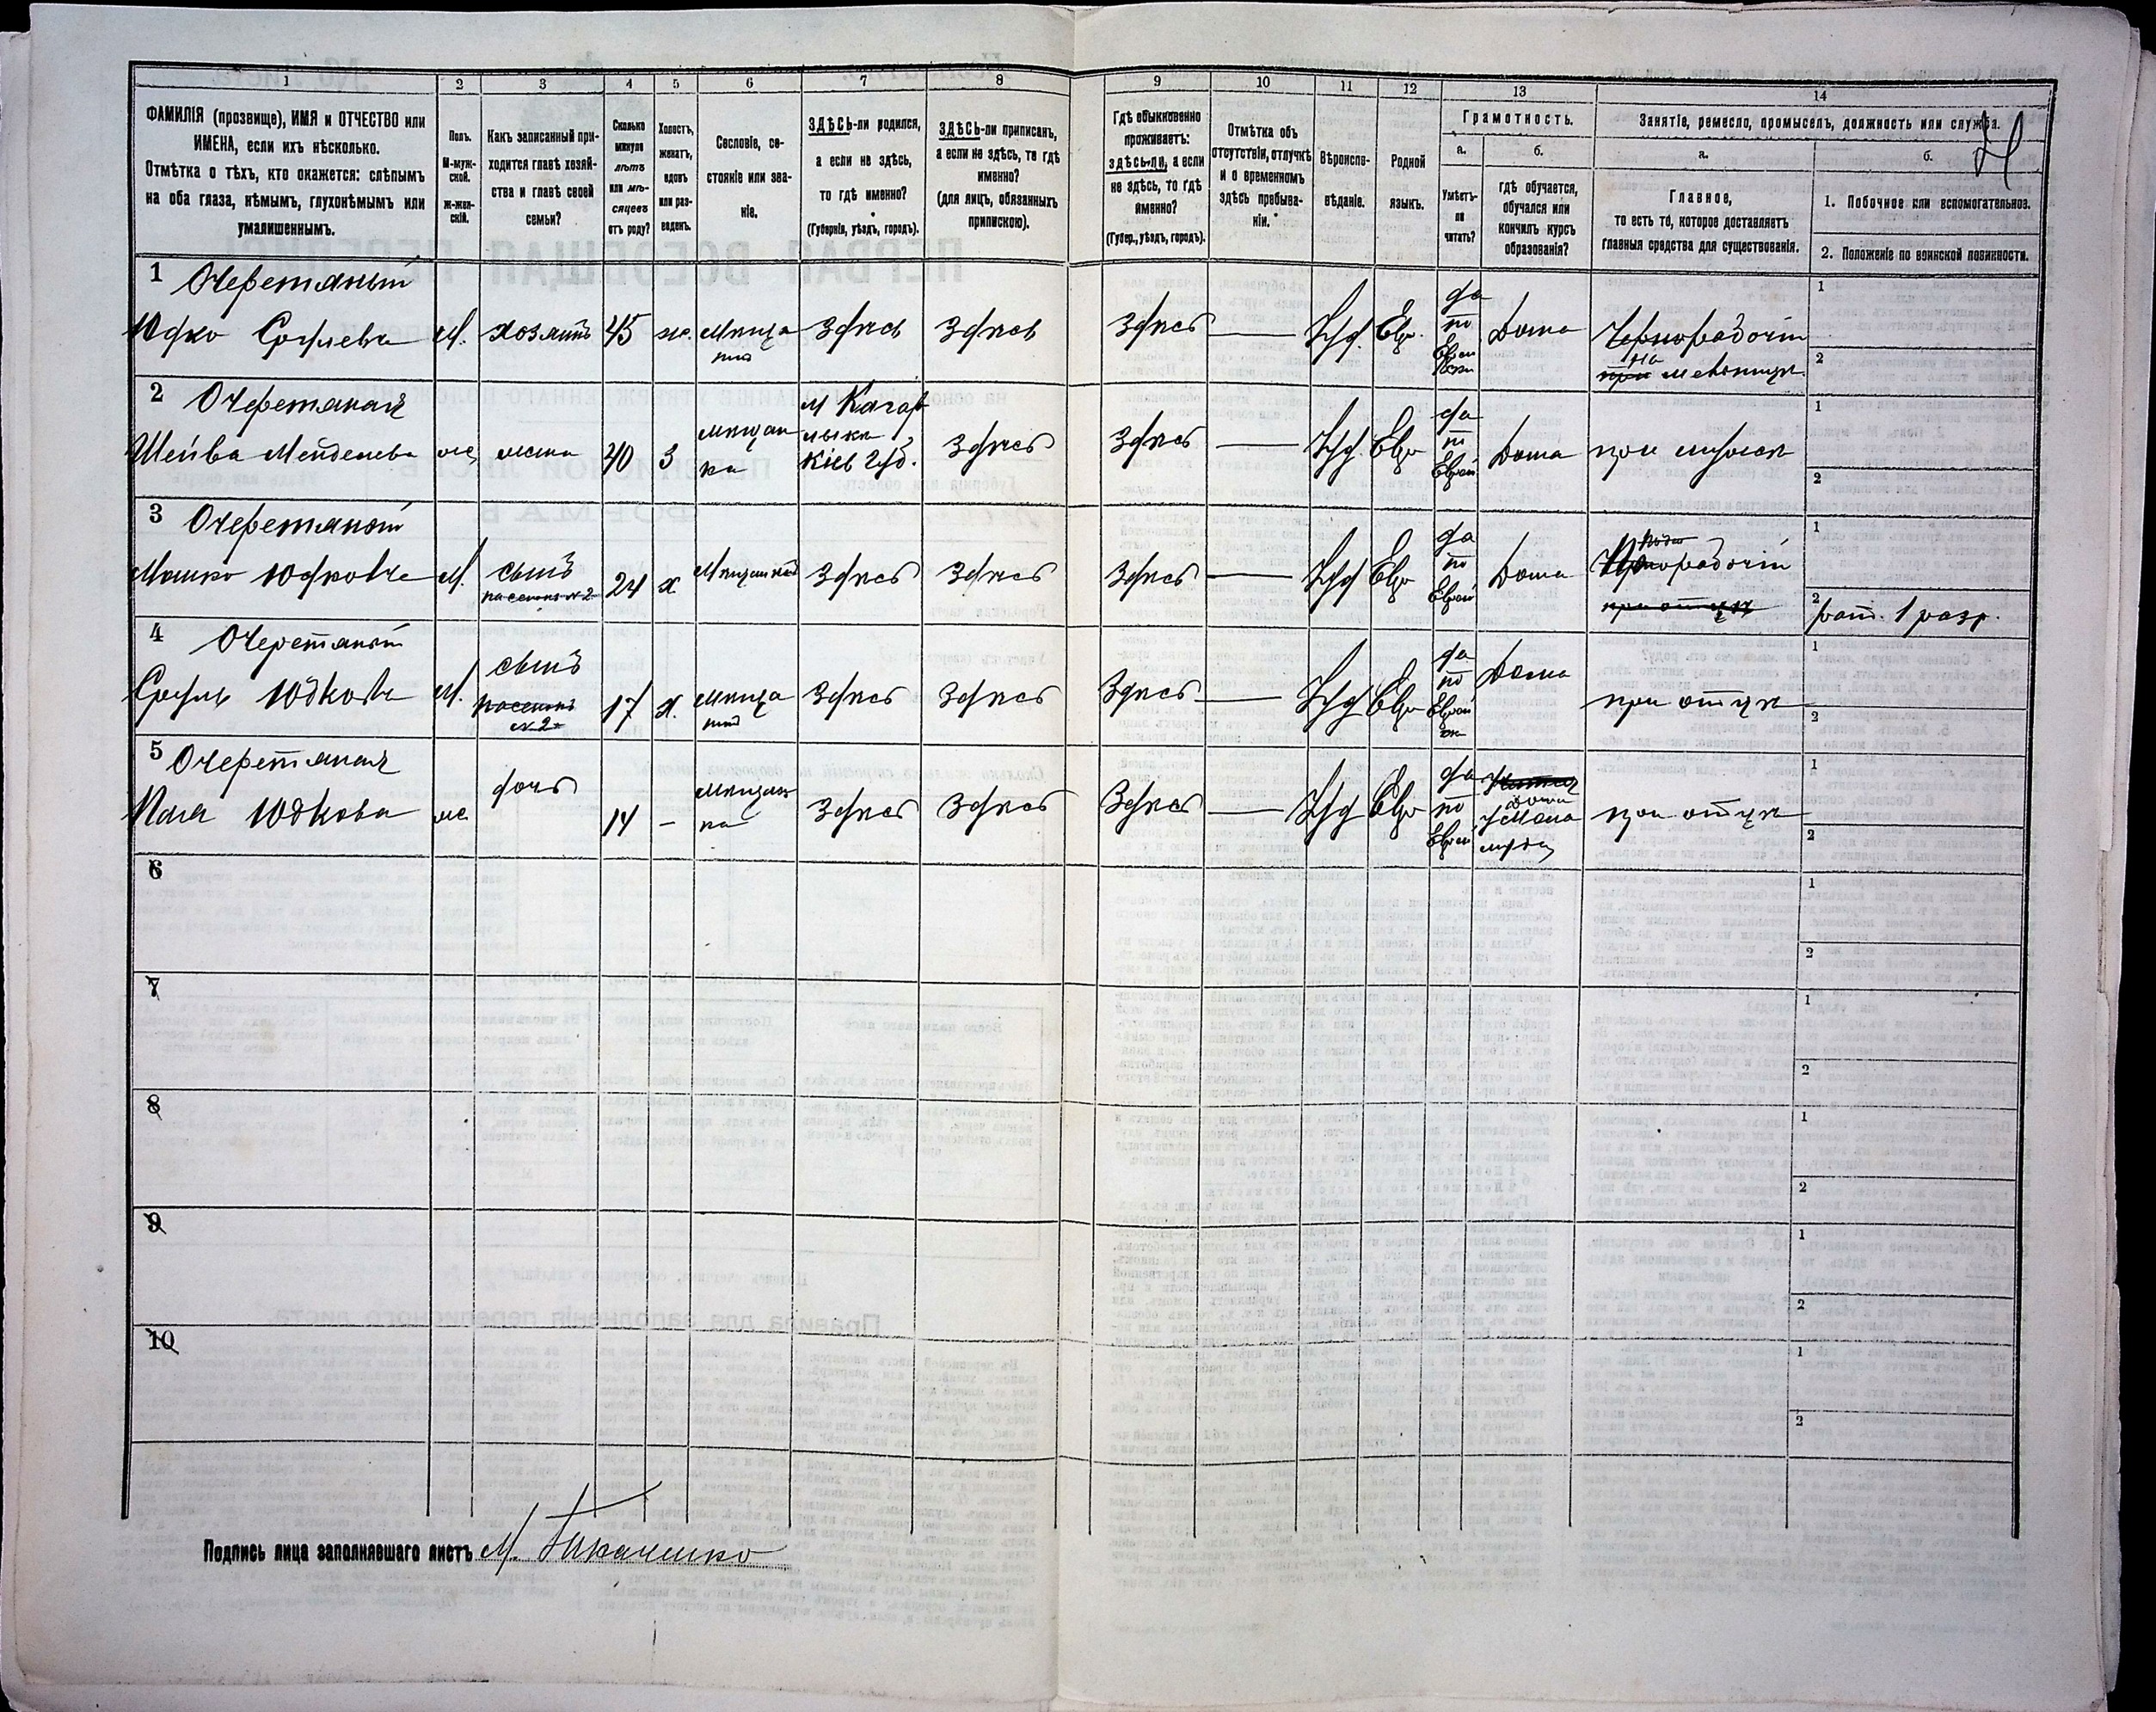 1 2 3 4 5 6 7 8 9 10 11 12 13 14
ФАМИЛІЯ (прозвище), ИМЯ и ОТЧЕСТВО или
ИМЕНА, если ихъ нѣсколько.
Отмѣтка о тѣхъ, кто окажется: слѣпымъ
на оба глаза, нѣмымъ, глухонѣмымъ или
умалишеннымъ.
Полъ.
М-муж-
ской.
Ж-жен-
скій.
Какъ записанный при-
ходится главѣ хозяй-
ства и главѣ своей
семьи?
Сколько
минуло
лѣтъ
или мѣ-
сяцевъ
отъ роду?
Холостъ,
женатъ,
вдовъ
или раз-
веденъ.
Сословіе, со-
стояніе или зва-
ніе.
ЗДѢСЬ-ли родился,
а если не здѣсь,
то гдѣ именно?
(Губернія, уѣздъ, городъ).
ЗДѢСЬ-ли приписанъ,
а если не здѣсь, то гдѣ
именно?
(для лицъ, обязанныхъ
припискою).
Гдѣ обыкновенно
проживаетъ:
здѣсь-ли, а если
не здѣсь, то гдѣ
именно?
(Губер., уѣздъ, городъ).
Отмѣтка объ
отсутствіи, отлучкѣ
и о временномъ
здѣсь пребыва-
ніи.
Вѣроиспо-
вѣданіе.
Родной
языкъ.
Грамотность.
а.
Умѣетъ-
ли
читать?
б.
гдѣ обучается,
обучался или
кончилъ курсъ
образованія?
Занятіе, ремесло, промыселъ, должность или служба.
а.
Главное,
то есть то, которое доставляетъ
главныя средства для существованія.
б.
1. Побочное или вспомогательное.
2. Положеніе по воинской повинности.
1 Очеретяный
Юдко Сруль​евъ М. хозяинъ 45 ж. Мѣща Здѣсь Здѣсь Здѣсь — Іуд. Евр. да по Дома Чернорабочій
на мельницѣ
2 Очеретяная
Шейва Менделева ж жена 40 З мѣщан
ка
м Кагар
лыка
Кіев Губ.
Здѣсь Здѣсь — Іуд. Евр да по Еврей Дома при мужѣ
3 Очеретяный
Мошко Юдковъ М. сынъ 24 х Мѣщанинъ Здѣсь Здѣсь Здѣсь — Іуд Евр да по Еврей Дома
рабочій
при отцѣ
рат. 1 разр.
4 Очеретяный
Сруль Юдковъ М. сынъ
№ 2
17 х. Мѣща Здѣсь Здѣсь Здѣсь — Іуд Евр да по Еврей Дома при отцѣ
5 Очеретяная
Юдкова ж дочь 14 — мѣщан
ка
Здѣсь Здѣсь Здѣсь — Іуд Евр да по Еврей дома
при отцѣ
6
7
8
9
10
Подпись лица заполнявшаго листъ М. Ткаченко